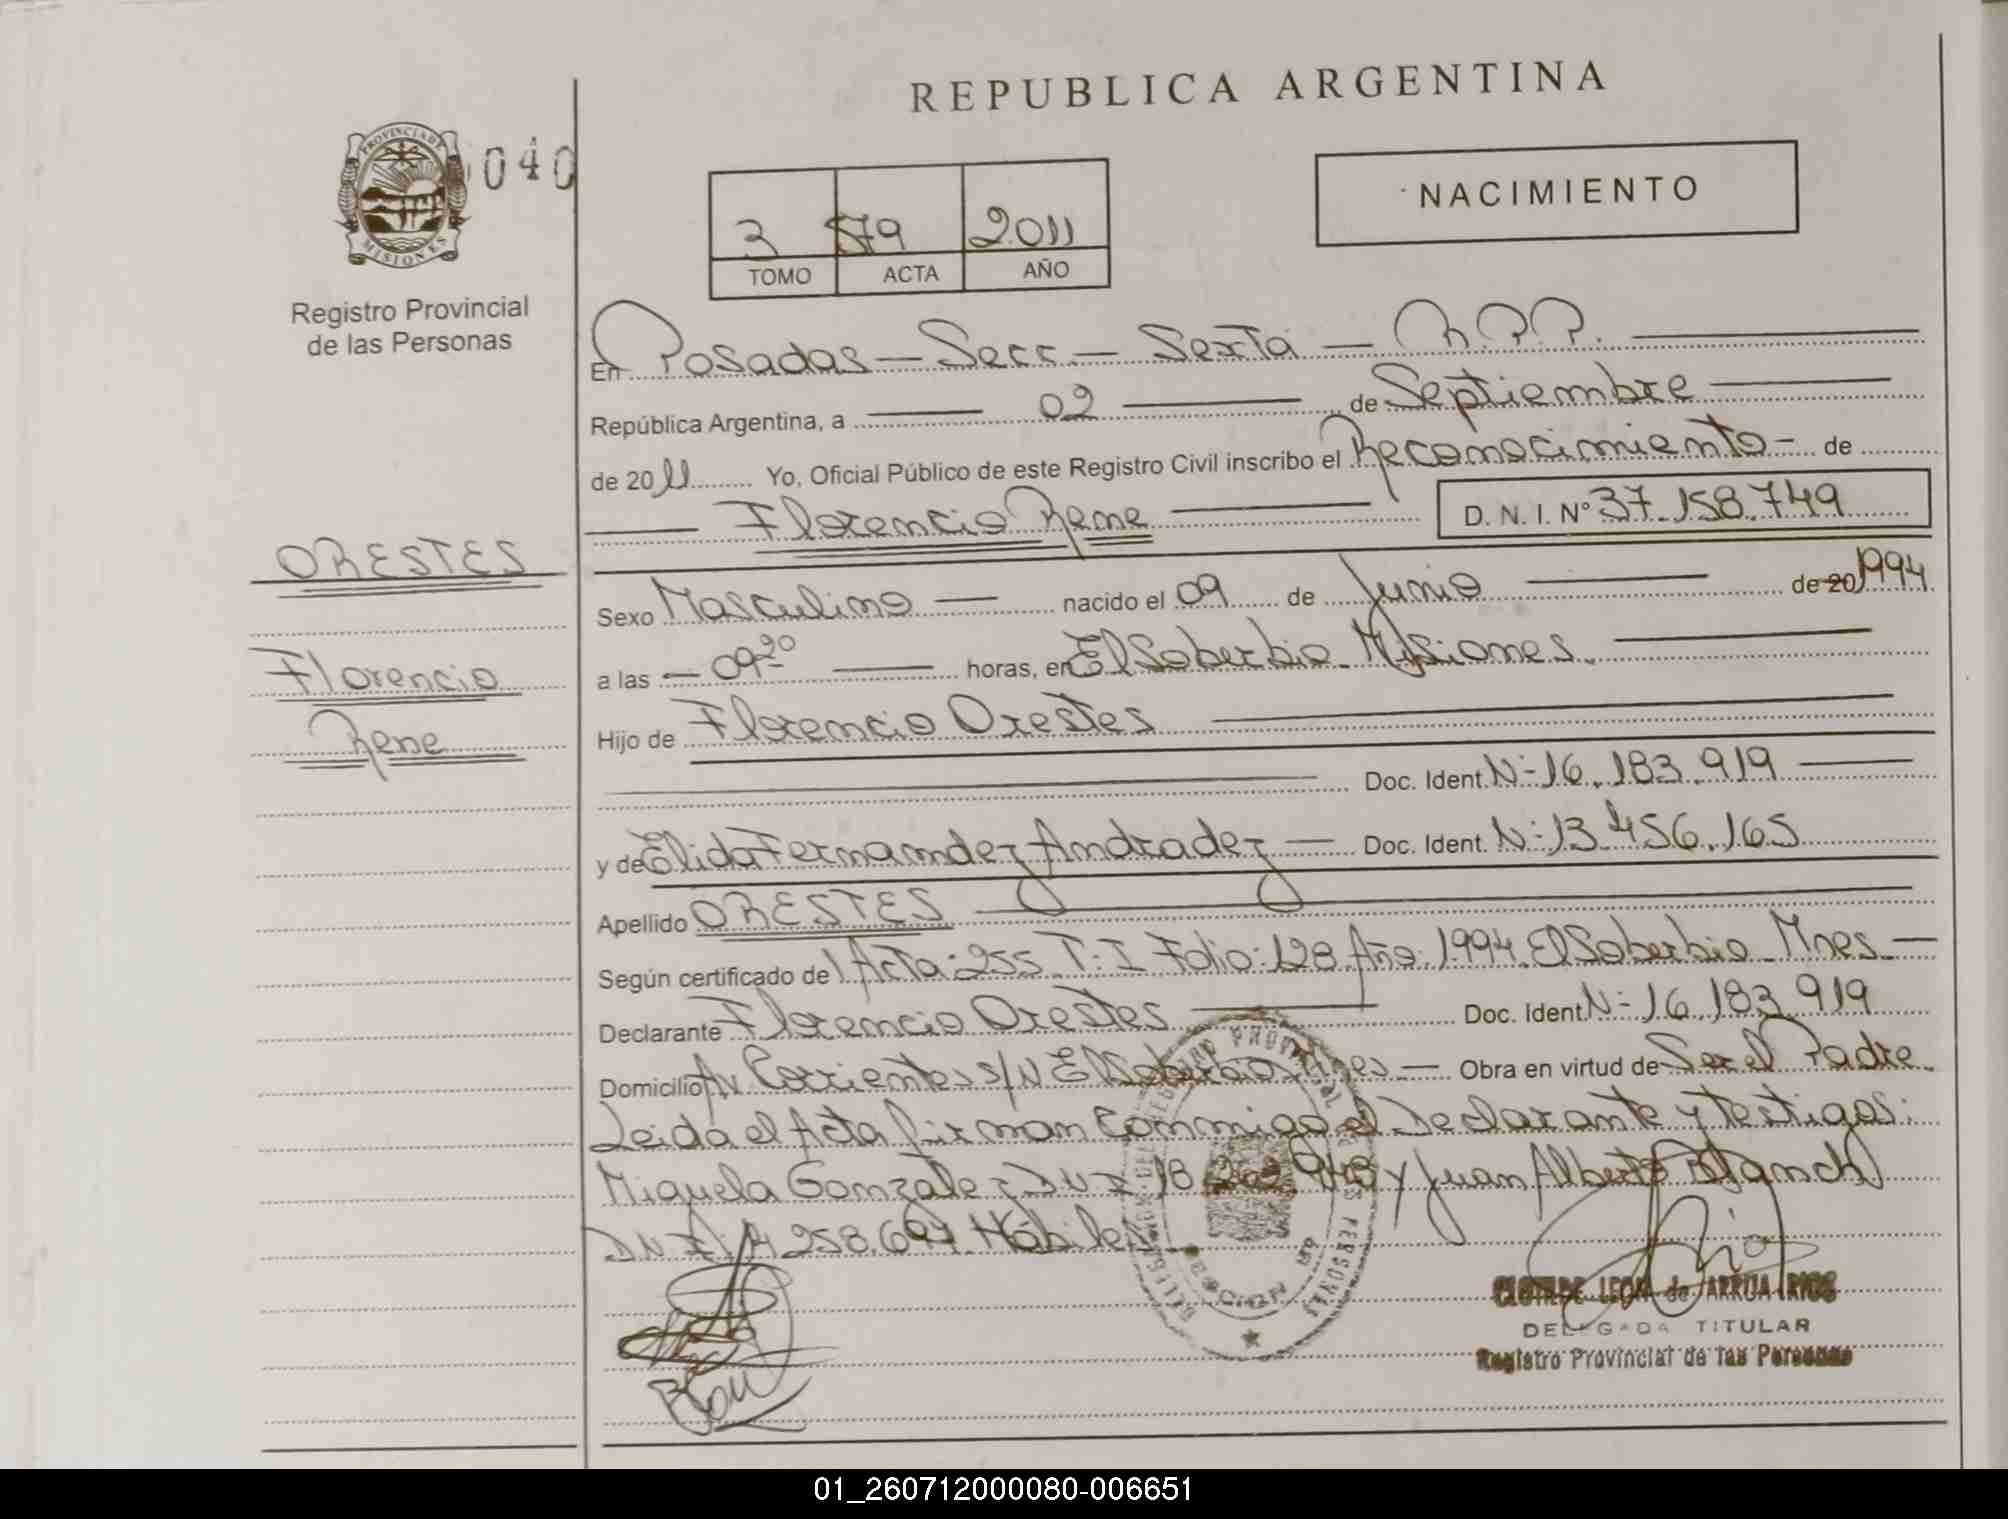 REPUBLICA ARGENTINA
PROVINCIA DE MISIONES
040
Registro Provincial
de las Personas
3 579 2011
TOMO ACTA AÑO
NACIMIENTO
En Posadas - Secc. - Sexta - R.P.P.
República Argentina, a 02 de Septiembre
de 2011 Yo, Oficial Público de este Registro Civil inscribo el Reconocimiento - de
Florencio Rene D. N. I. Nº 37.158.749
ORESTES
Florencio
Rene
Sexo Masculino - nacido el 09 de Junio de 20 1994
a las - 09 20 horas, en El Soberbio Misiones.
Hijo de Florencio Orestes
Doc. Ident. N:-16.183.919
y de Elida Fernandez Andradez - Doc. Ident. N:-13.456.165
Apellido ORESTES
Según certificado de Acta: 255 T: I Folio: 128 Año: 1994 El Soberbio Mnes -
Declarante Florencio Orestes Doc. Ident. N:-16.183.919
Domicilio Av Corrientes s/N El Soberbio Mnes - Obra en virtud de Ser el Padre
Leida el Acta firman Conmigo el Declarante y testigos:
Miquela Gonzalez DNI 18 943 y Juan Alberto
DNI 258.697 Hábiles
CLOTILDE LEON de ARRUA RIOS
DELEGADA TITULAR
Registro Provincial de las Personas
01_260712000080-006651